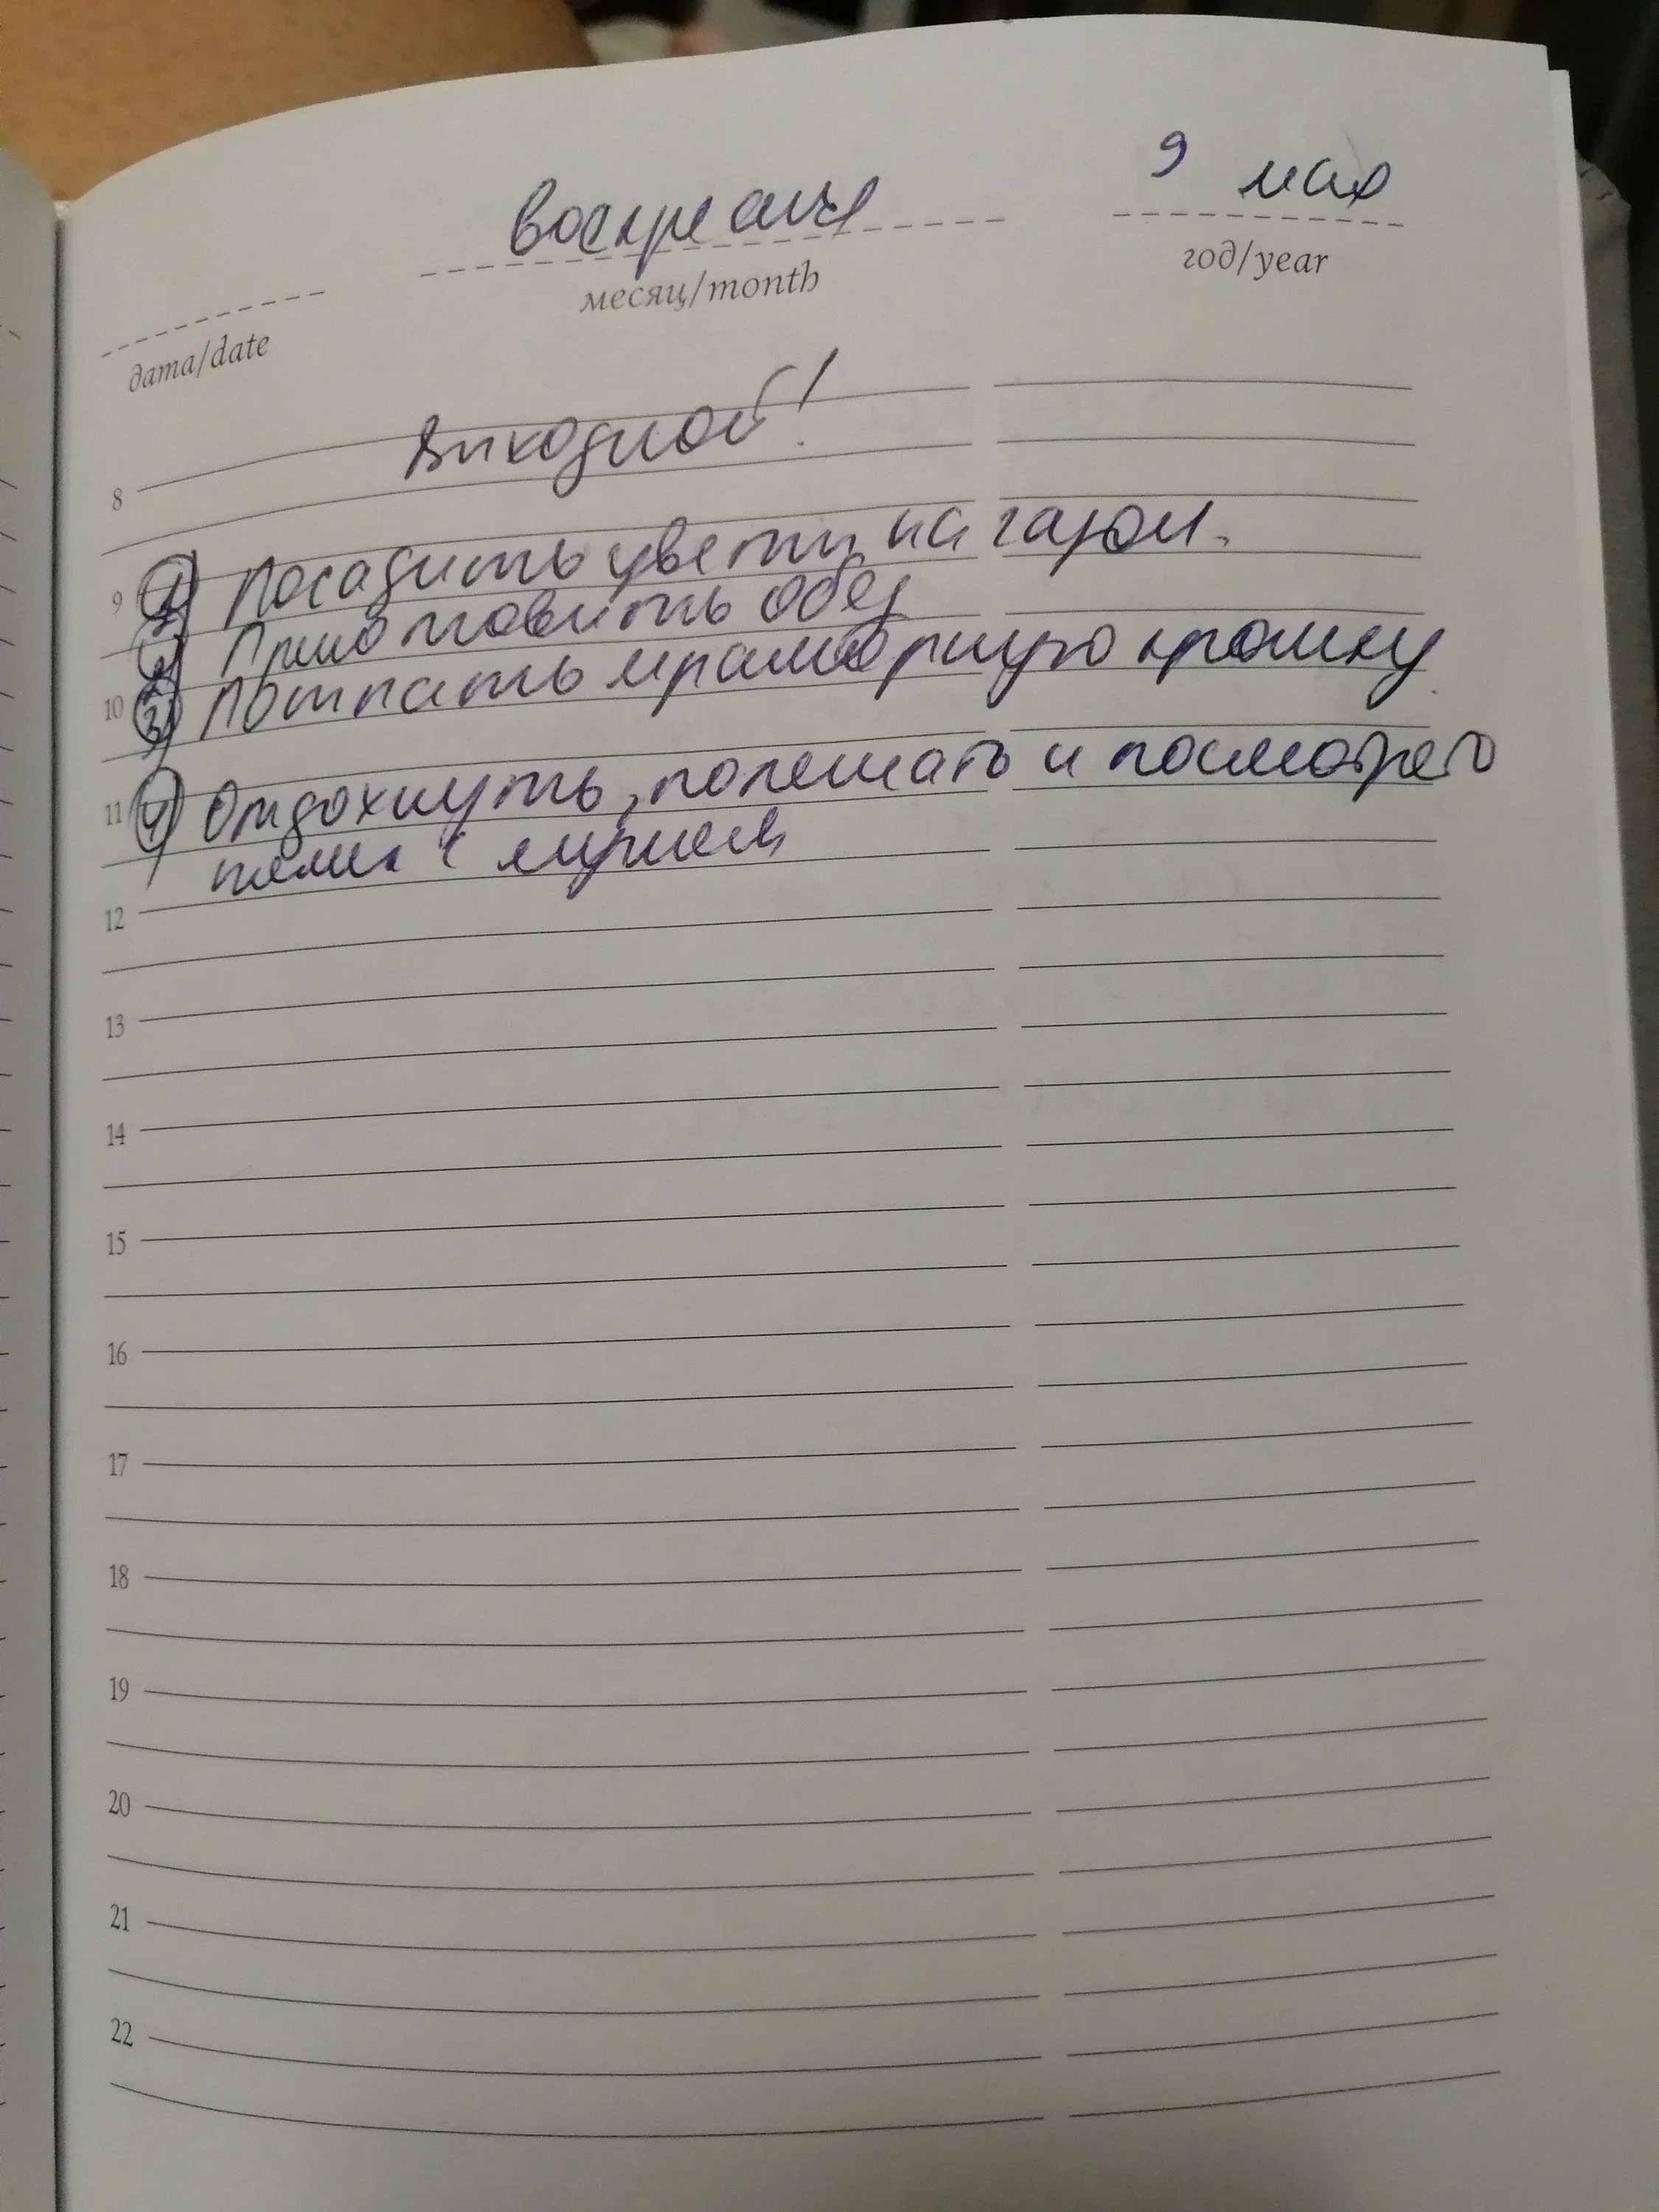 9 мая
воскресенье
год/year
месяц/month
дата/date
Выходной!
8
9 1) Посадить цветы на газон.
2) Приготовить обед
10 3) Потпать мраморную крошку
11 4) Отдохнуть, полежать и посмотреть
телик с мужем
12
13
14
15
16
17
18
19
20
21
22